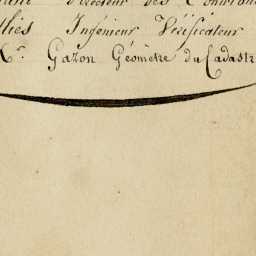 Directeur des Contribu
llies Ingénieur Vérificateur
Gazon Géomètre du Cadastr